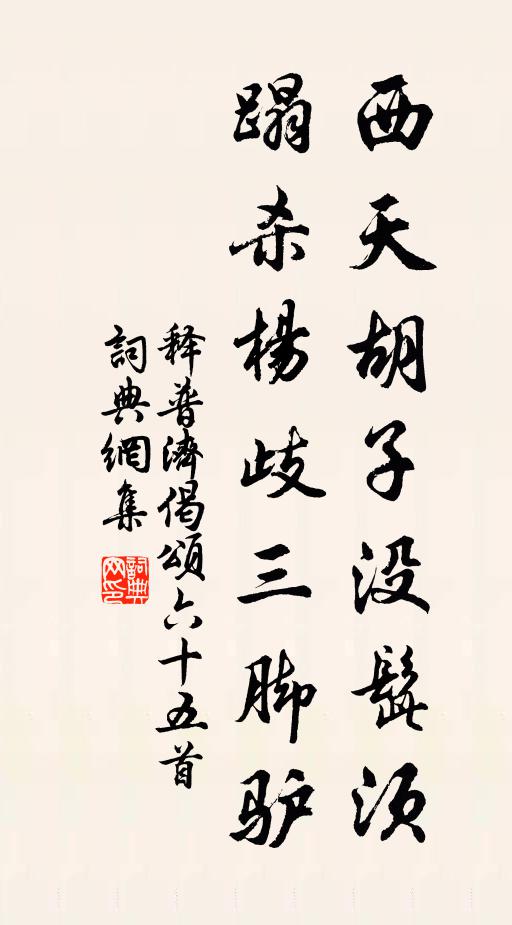 西天胡子没髭须
蹋杀楊歧三脚驴
释普濟偈頌六十五首
詞典網集
詞典网印